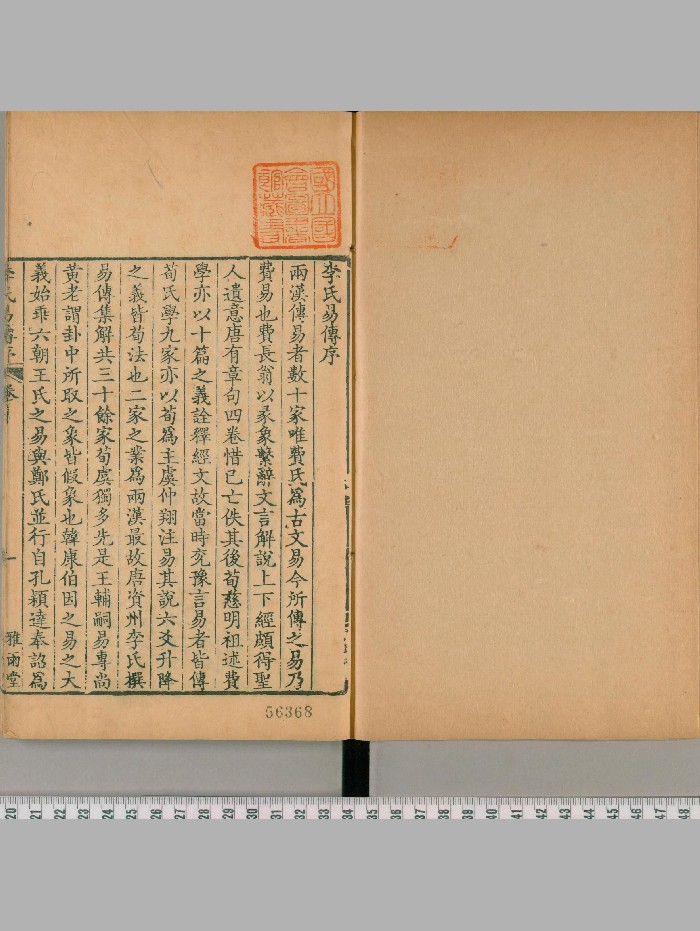 李氏易傳序
兩漢傳易者數十家唯費氏爲古文易今所傳之易乃
費易也費長翁以彖象繫辭文言解說上下經頗得聖
人遺意唐有章句四卷惜已亡佚其後荀慈明祖述費
學亦以十篇之義詮釋經文故當時兖豫言易者皆傳
荀氏學九家亦以荀爲主虞仲翔注易其說六爻升降
之義皆荀法也二家之業爲兩漢最故唐資州李氏撰
易傳集解共三十餘家荀虞獨多先是王輔嗣易專尚
黃老謂卦中所取之象皆假象也韓康伯因之易之大
義始乖六朝王氏之易與鄭氏並行自孔穎達奉詔爲
李氏易傳序
雅雨堂
國立國會圖書館藏書
56368
20 21 22 23 24 25 26 27 28 29 30 31 32 33 34 35 36 37 38 39 40 41 42 43 44 45 46 47 48